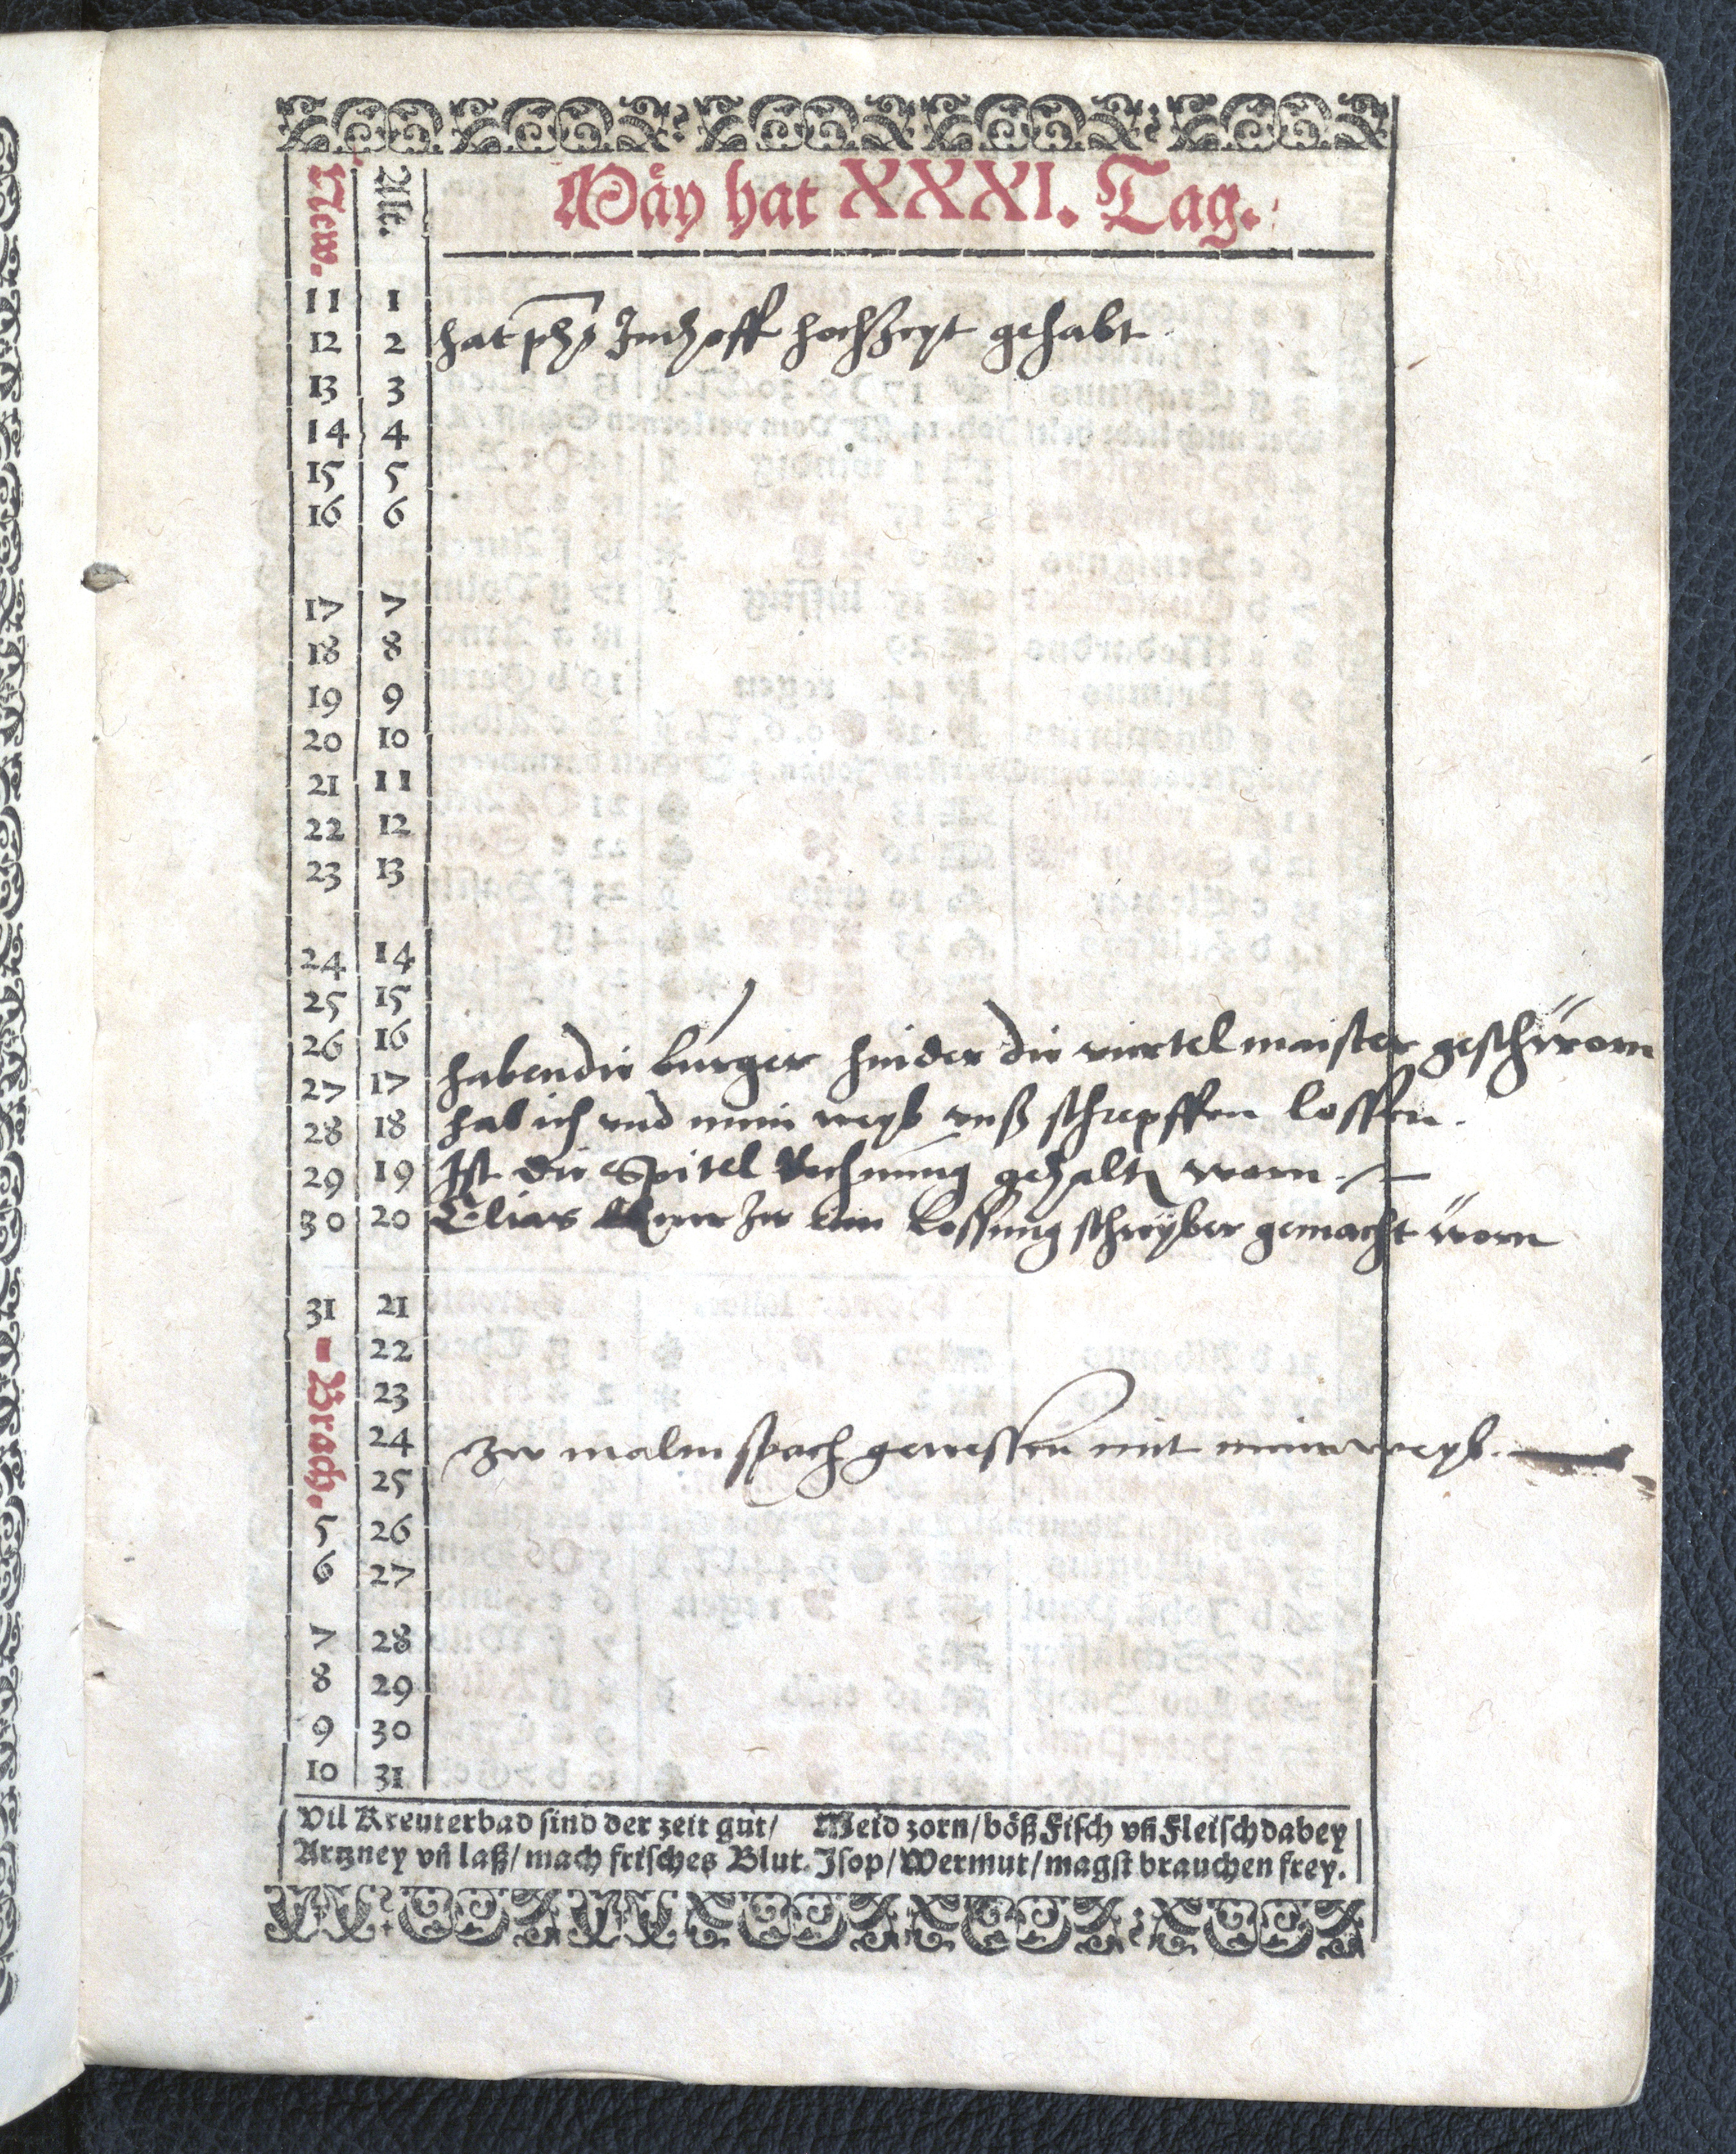 Mäy hat XXXI. Tag.
New. Alt.
11 1
12 2 hat phs Imhoff hochzeyt gehabt
13 3
14 4
15 5
16 6
17 7
18 8
19 9
20 10
21 11
22 12
23 13
24 14
25 15
26 16
27 17 haben die burger hinder die viertelmaister geschworn
28 18 hab ich vnd mein weyb vnß schrepffen lossen.
29 19 Ist die Spitel Rechnung gehalten worn.
30 20 Elias zu Lossung schreyber gemacht worn
31 21
Brach. 22
23
24 Zw malmspach gewessen mit meim weyb.
25
5 26
6 27
7 28
8 29
9 30
10 31
Vil Kreuterbad sind der zeit gut/ Meid zorn/böß Fisch vñ Fleisch dabey
Artzney vñ laß/mach frisches Blut. Isop/Wermut/magst brauchen frey.